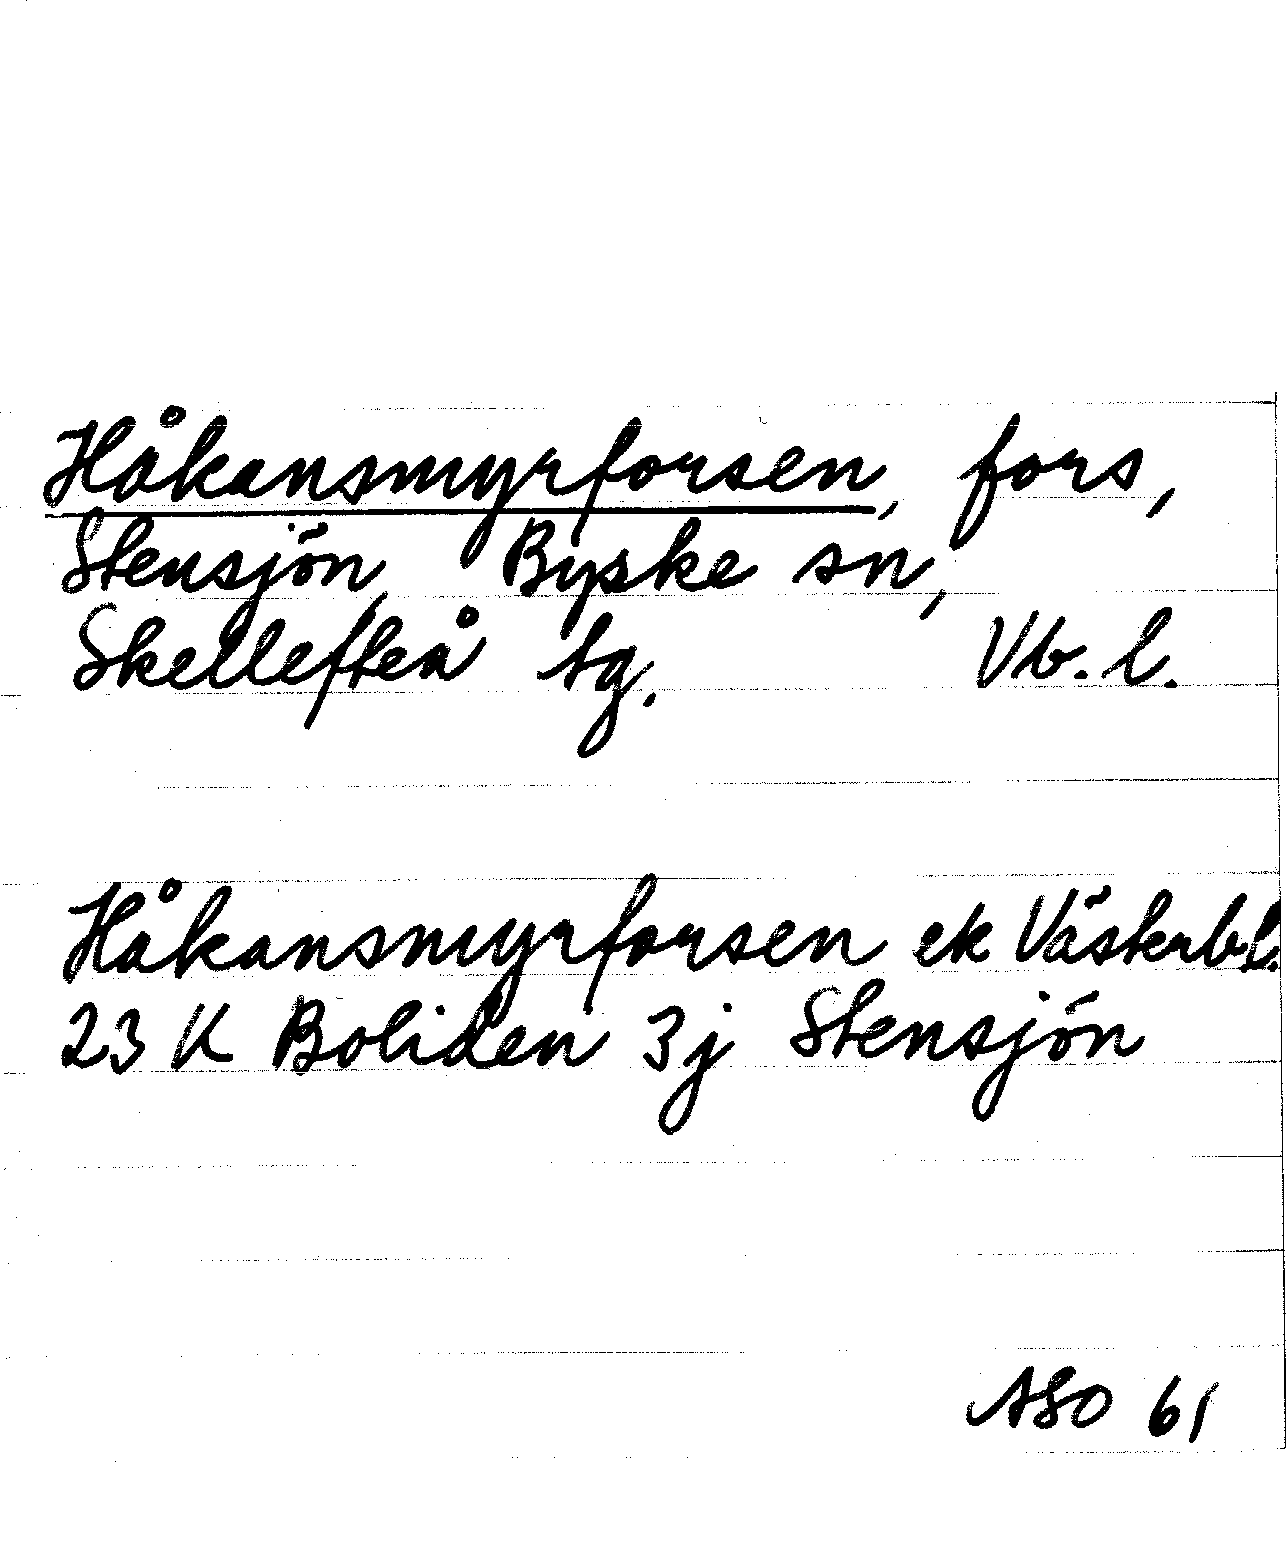 Håkansmyrforsen, fors,
Stensjön, Byske sn,
Skellefteå tg. Vb. l.
Håkansmyrforsen ek Västerb.l.
23 K Boliden 3j Stensjön
ASO 61